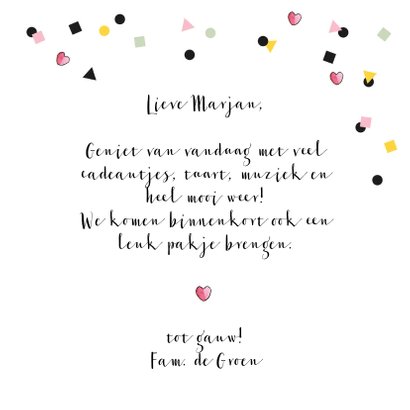 Lieve Marjan,
Geniet van vandaag met veel
cadeautjes, taart, muziek en
heel mooi weer!
We komen binnenkort ook een
leuk pakje brengen.
tot gauw!
Fam. de Groen